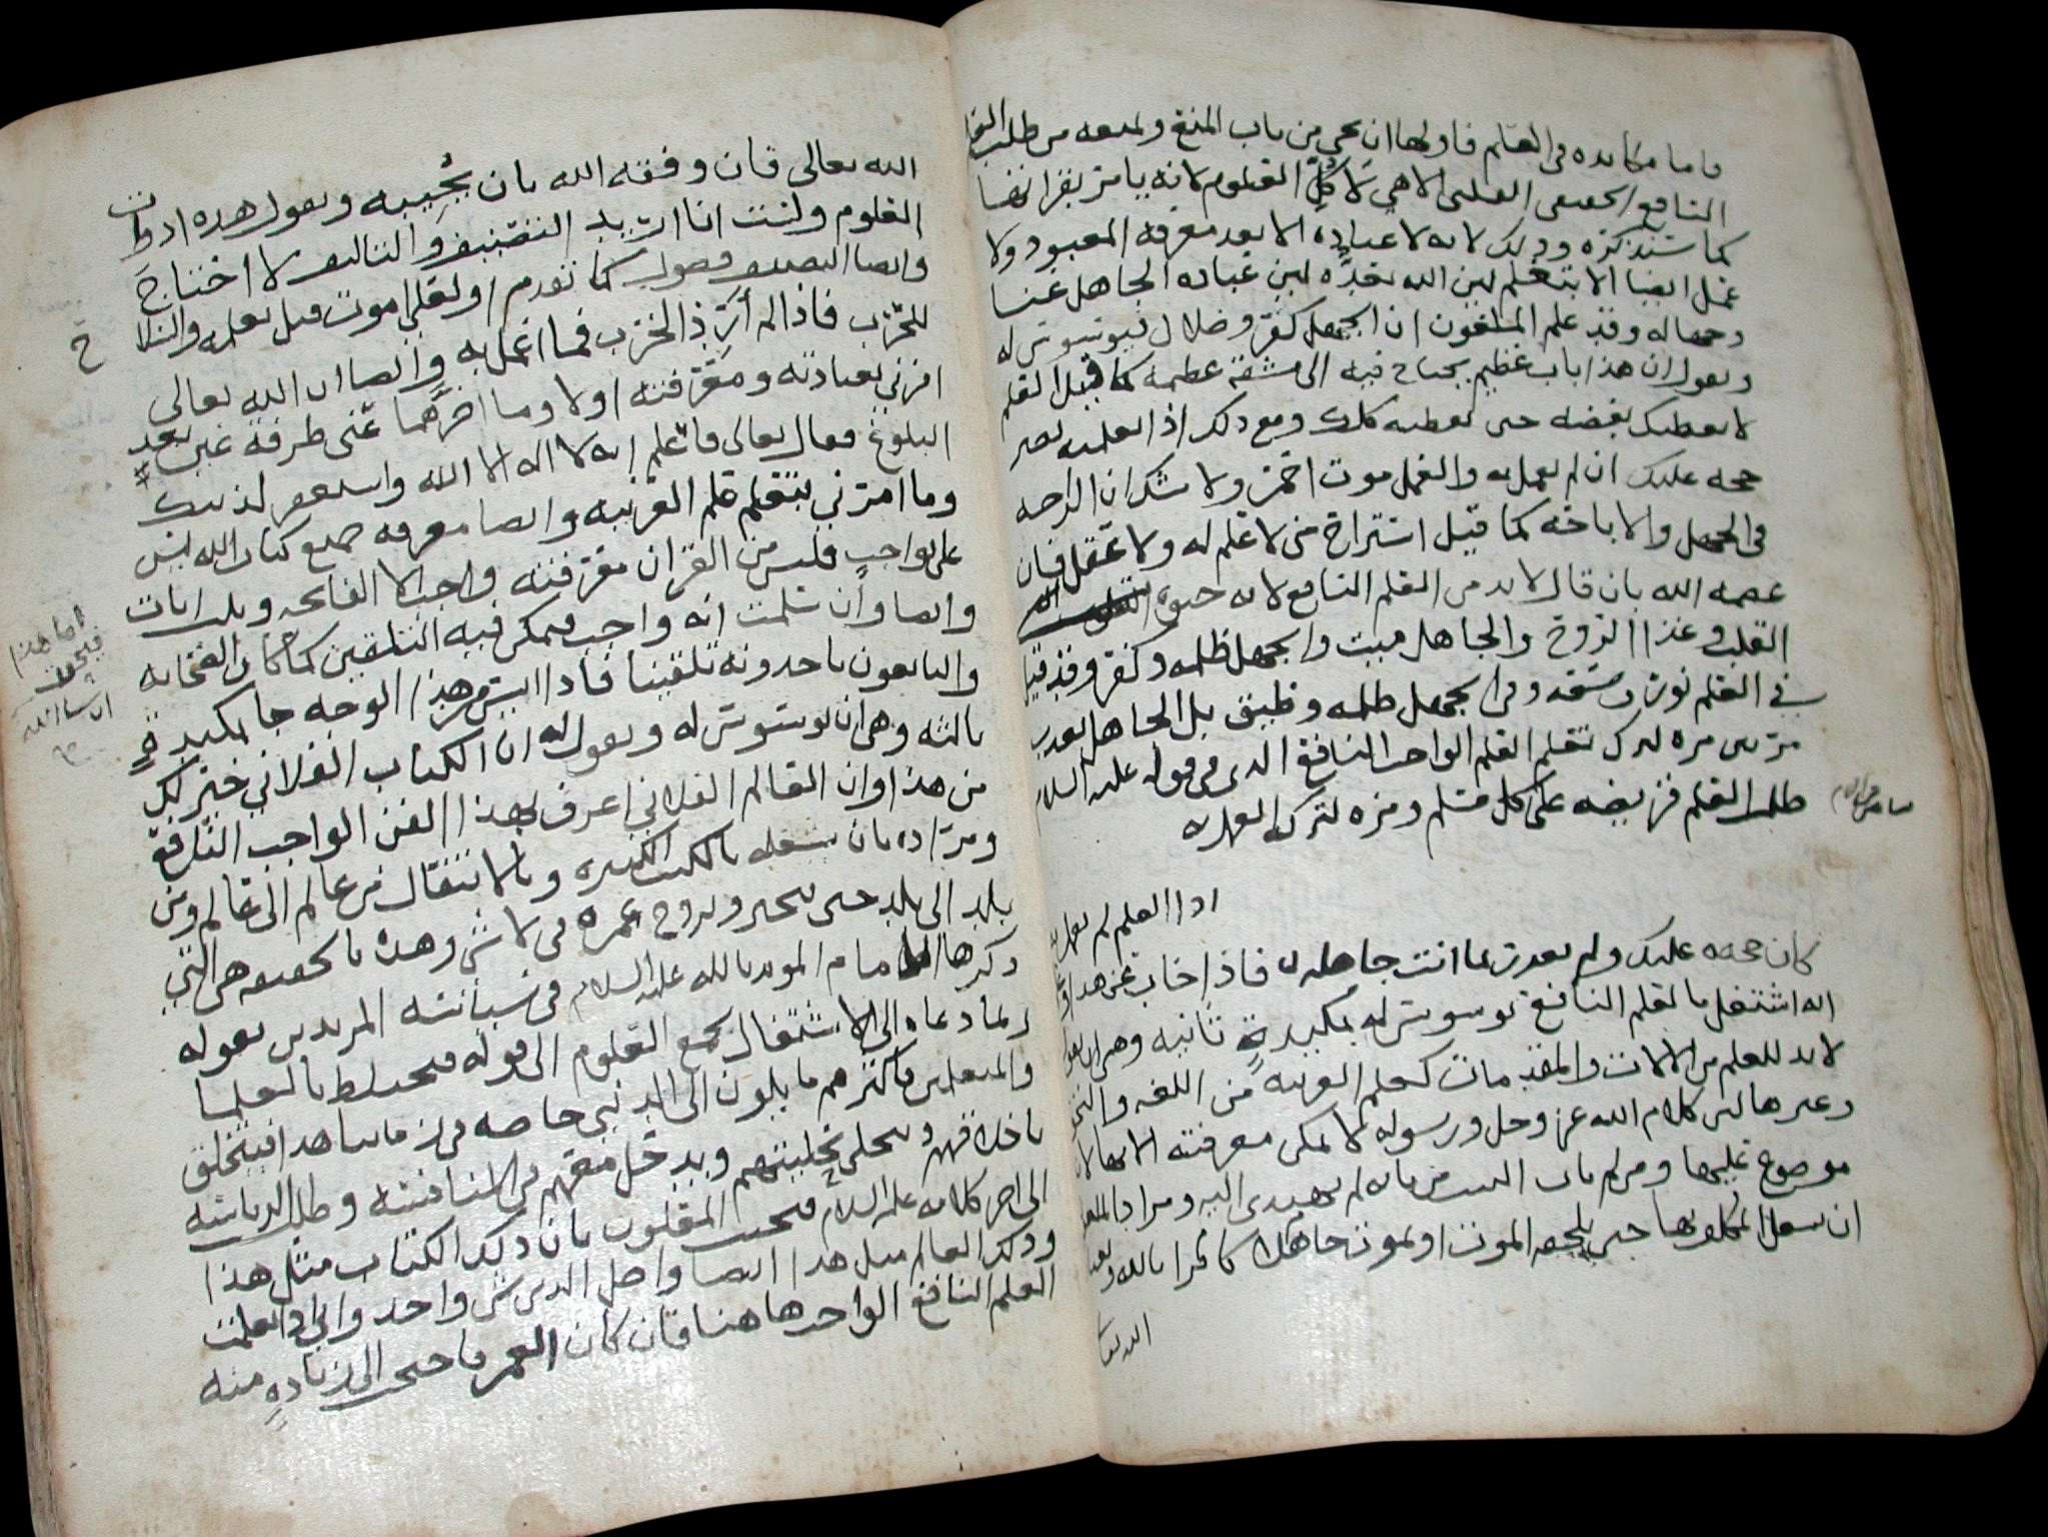 فاما مكايده في العلم فاولها ان يجي من باب المنع ويمنعه من طلب العلم
النافع الحقيقي العلمي الالاهي لا كل العلوم لانه يامر بقرا بعضا
كما سنذكره وذلك لانه لا عباده الا بعد معرفه المعبود ولا
عمل ايضا الا بتعلم لين الله بعده لين عباده الجاهل عنا
وجهاله وقد علم الملعون ان الجهل كفر وضلال فيوسوس له
ويقول ان هذا باب عظيم يحتاج فيه الى مشقه عظيمه كما قيل العلم
لا يعطيك بعضه حتى تعطيه كلك ومع ذلك اذا تعلمته يصير
حجه عليك ان لم تعمل به والعمل موت احمر ولا شك ان الراحه
في الجهل والاباحه كما قيل استراح من لا علم له ولا عقل فان
عصمه الله بان قال لا بد من العلم النافع لانه حيوة
القلب وغذا الروح والجاهل ميت والجهل ظلمه وكفر وقد قيل
في العلم نور وسعه وفي الجهل ظلمه وضيق بل الجاهل يعذب
مرتين مره لترك تعلم العلم الواجب النافع الذي في قوله عليه السلام
طلب العلم فريضه على كل مسلم ومره لترك العمل به
اذا العلم لم تعمل به
كان حجه عليك ولم تعذر بما انت جاهله فاذا خاب عن هذا وعلم
انه اشتغل بالعلم النافع توسوس له بمكيدةٍ ثانيه وهي ان يقول
لا بد للعلم من الالات والمقدمات كعلم العربيه من اللغه والنحو
وغيرها لين كلام الله عز وجل ورسوله لا يمكن معرفته الا بها لانه
موضوع عليها ومن لم يات البيت من بابه لم يهتدي اليه ومراد الملعون
ان يشغل المكلف بها حتى يلجقه الموت او يموت جاهلا كافرا بالله وبعد
الله تعالى
الله تعالى فان وفقه الله بان يجيبه ويقول هذه ادوات
العلوم ولست انا اريد التصنيف والتاليف لا احتاج
وايضا التصنيف فضول كما تقدم ولعلي اموت قبل تعلمه والتلا
للحرب فاذا لم أرد الحرب فما اعمل به وايضا ان الله تعالى
امرني بعبادته ومعرفته اولا وما اخرهما عني طرفة عين بعد
البلوغ فقال تعالى فاعلم انه لا اله الا الله واستغفر لذنبك
وما امرني بتعلم علم العربيه وايضا معرفه جميع كتاب الله ليس
على بواجب فليس من القران معرفته واجب الا الفاتحه وثلاث ايات
وايضا وأن سلمت انه واجب فيمكن فيه التلقين كما كان الصحابه
والتابعون ياخذونه تلقينا فاذا ايس من هذا الوجه جا بمكيدةٍ
ثالثه وهي ان يوسوس له ويقول له ان الكتاب الفلاني خير لك
من هذا وان العالم الفلاني اعرف بهذا الفن الواجب النافع
ومراده بان يشغله بالكتب الكثيره وبالانتقال من عالم الى عالم ومن
بلد الى بلد حتى يتحير ويروح عمره في لا شي وهذه بالحقيقه هي التي
ذكرها الامام المويد بالله عليه السلام في سياسته المريدين بقوله
ربما دعاه الى الاشتغال بجمع العلوم الى قوله فيختلط بالعلما
والمتعلمين فاكثرهم مايلون الى الدنيى خاصه في زماننا هذا فيتخلق
باخلاقهم ويتحلى بحليتهم ويدخل معهم في المنافسه وطلب الرياسه
الى اخر كلامه عليه السلام فيجيب المعلون بان ذلك الكتاب مثل هذا
وذلك العالم مثل هذا ايضا واصل الدين شي واحد واني اذا تعلمت
العلم النافع الواجب هاهنا فان كان العمر باحتى الى زيادهٍ منه
اما هذا
فيجوز
ان شا الله